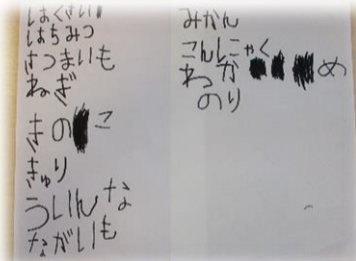 はくさい
はちみつ
さつまいも
ねぎ
きのこ
きゅり
ういんな
ながいも
みかん
こんにゃく
わかめ
のり